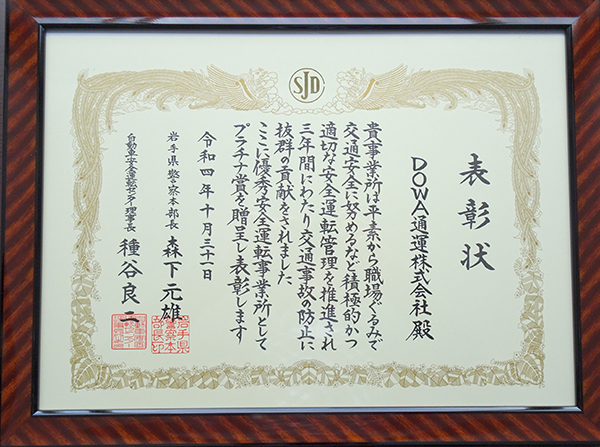 SJD
表彰状
DOWA通運株式会社 殿
貴事業所は平素から職場ぐるみで
交通安全に努めるなど積極的かつ
適切な安全運転管理を推進され
三年間にわたり交通事故の防止に
抜群の貢献をされました
ここに優秀安全運転事業所として
プラチナ賞を贈呈し表彰します
令和四年十月三十一日
岩手県警察本部長 森下元雄
自動車安全運転センター理事長 種谷良二
岩手県
警察本
部長印